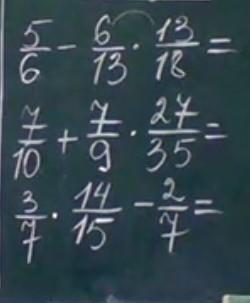 5/6 - 6/13 · 13/18 =
7/10 + 7/9 · 27/35 =
3/7 · 14/15 - 2/7 =